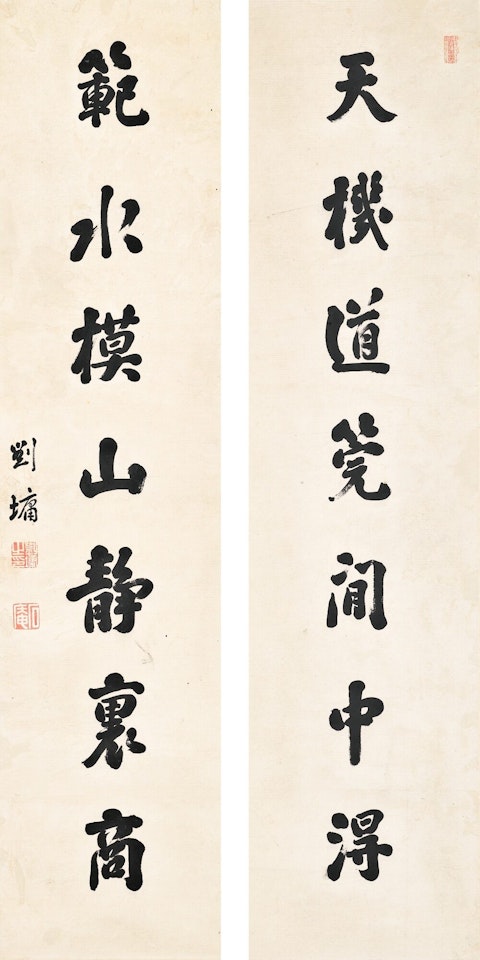 天機道筦閒中得
範水模山静裏商
劉墉